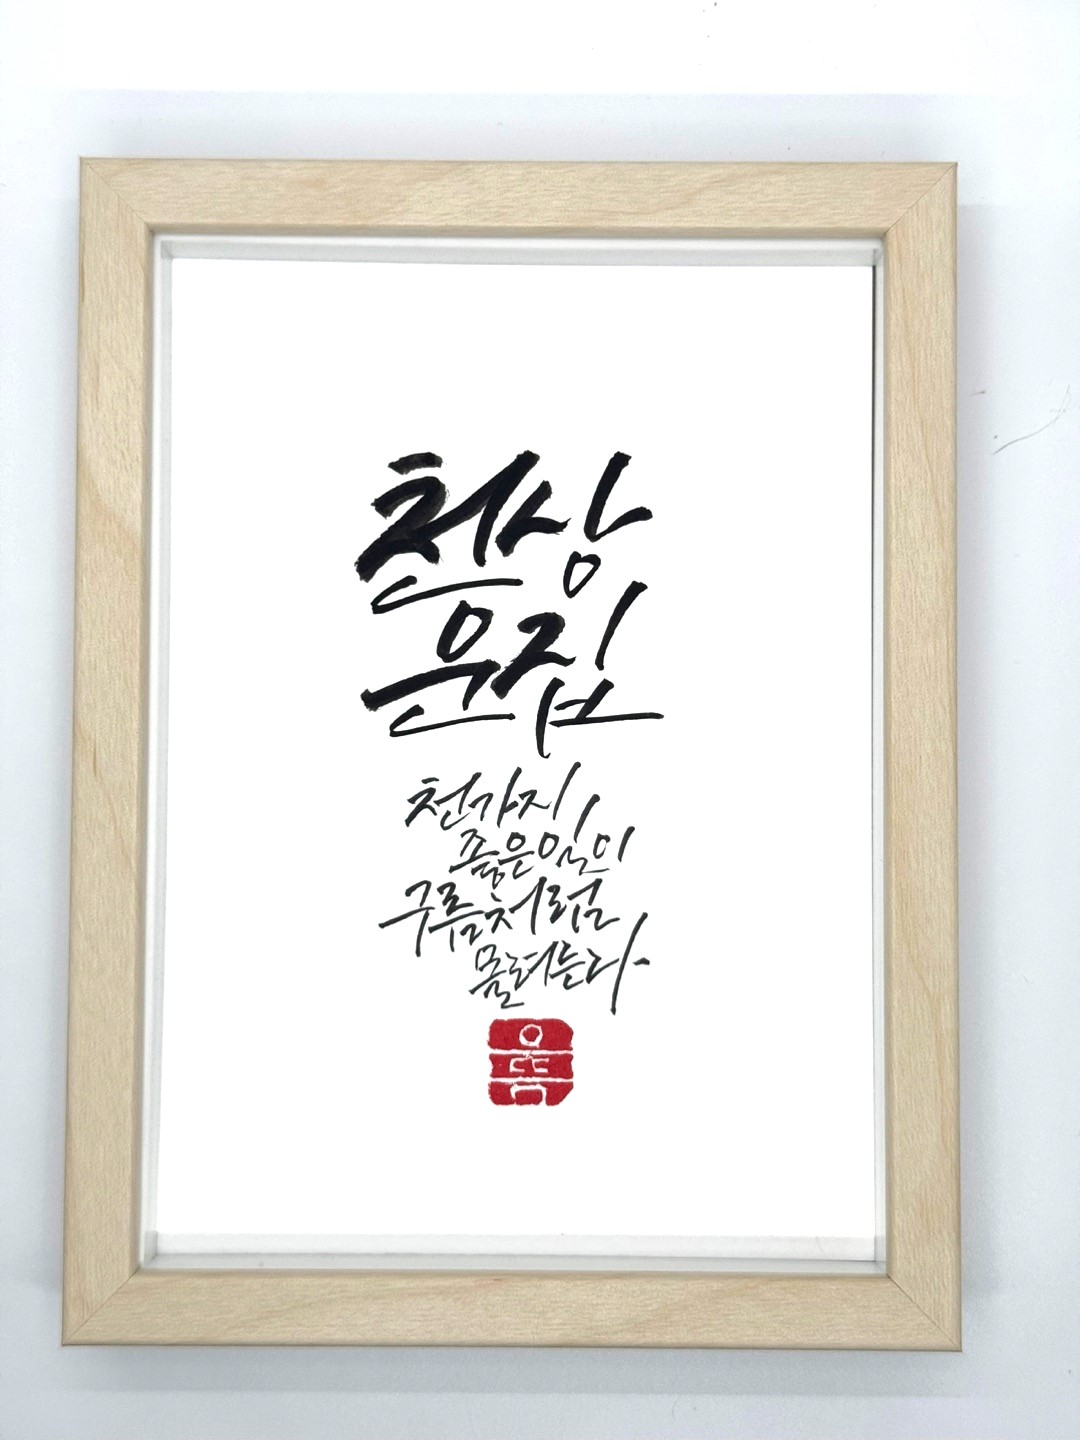 천상
운집
천가지
좋은일이
구름처럼
몰려든다
으뜸